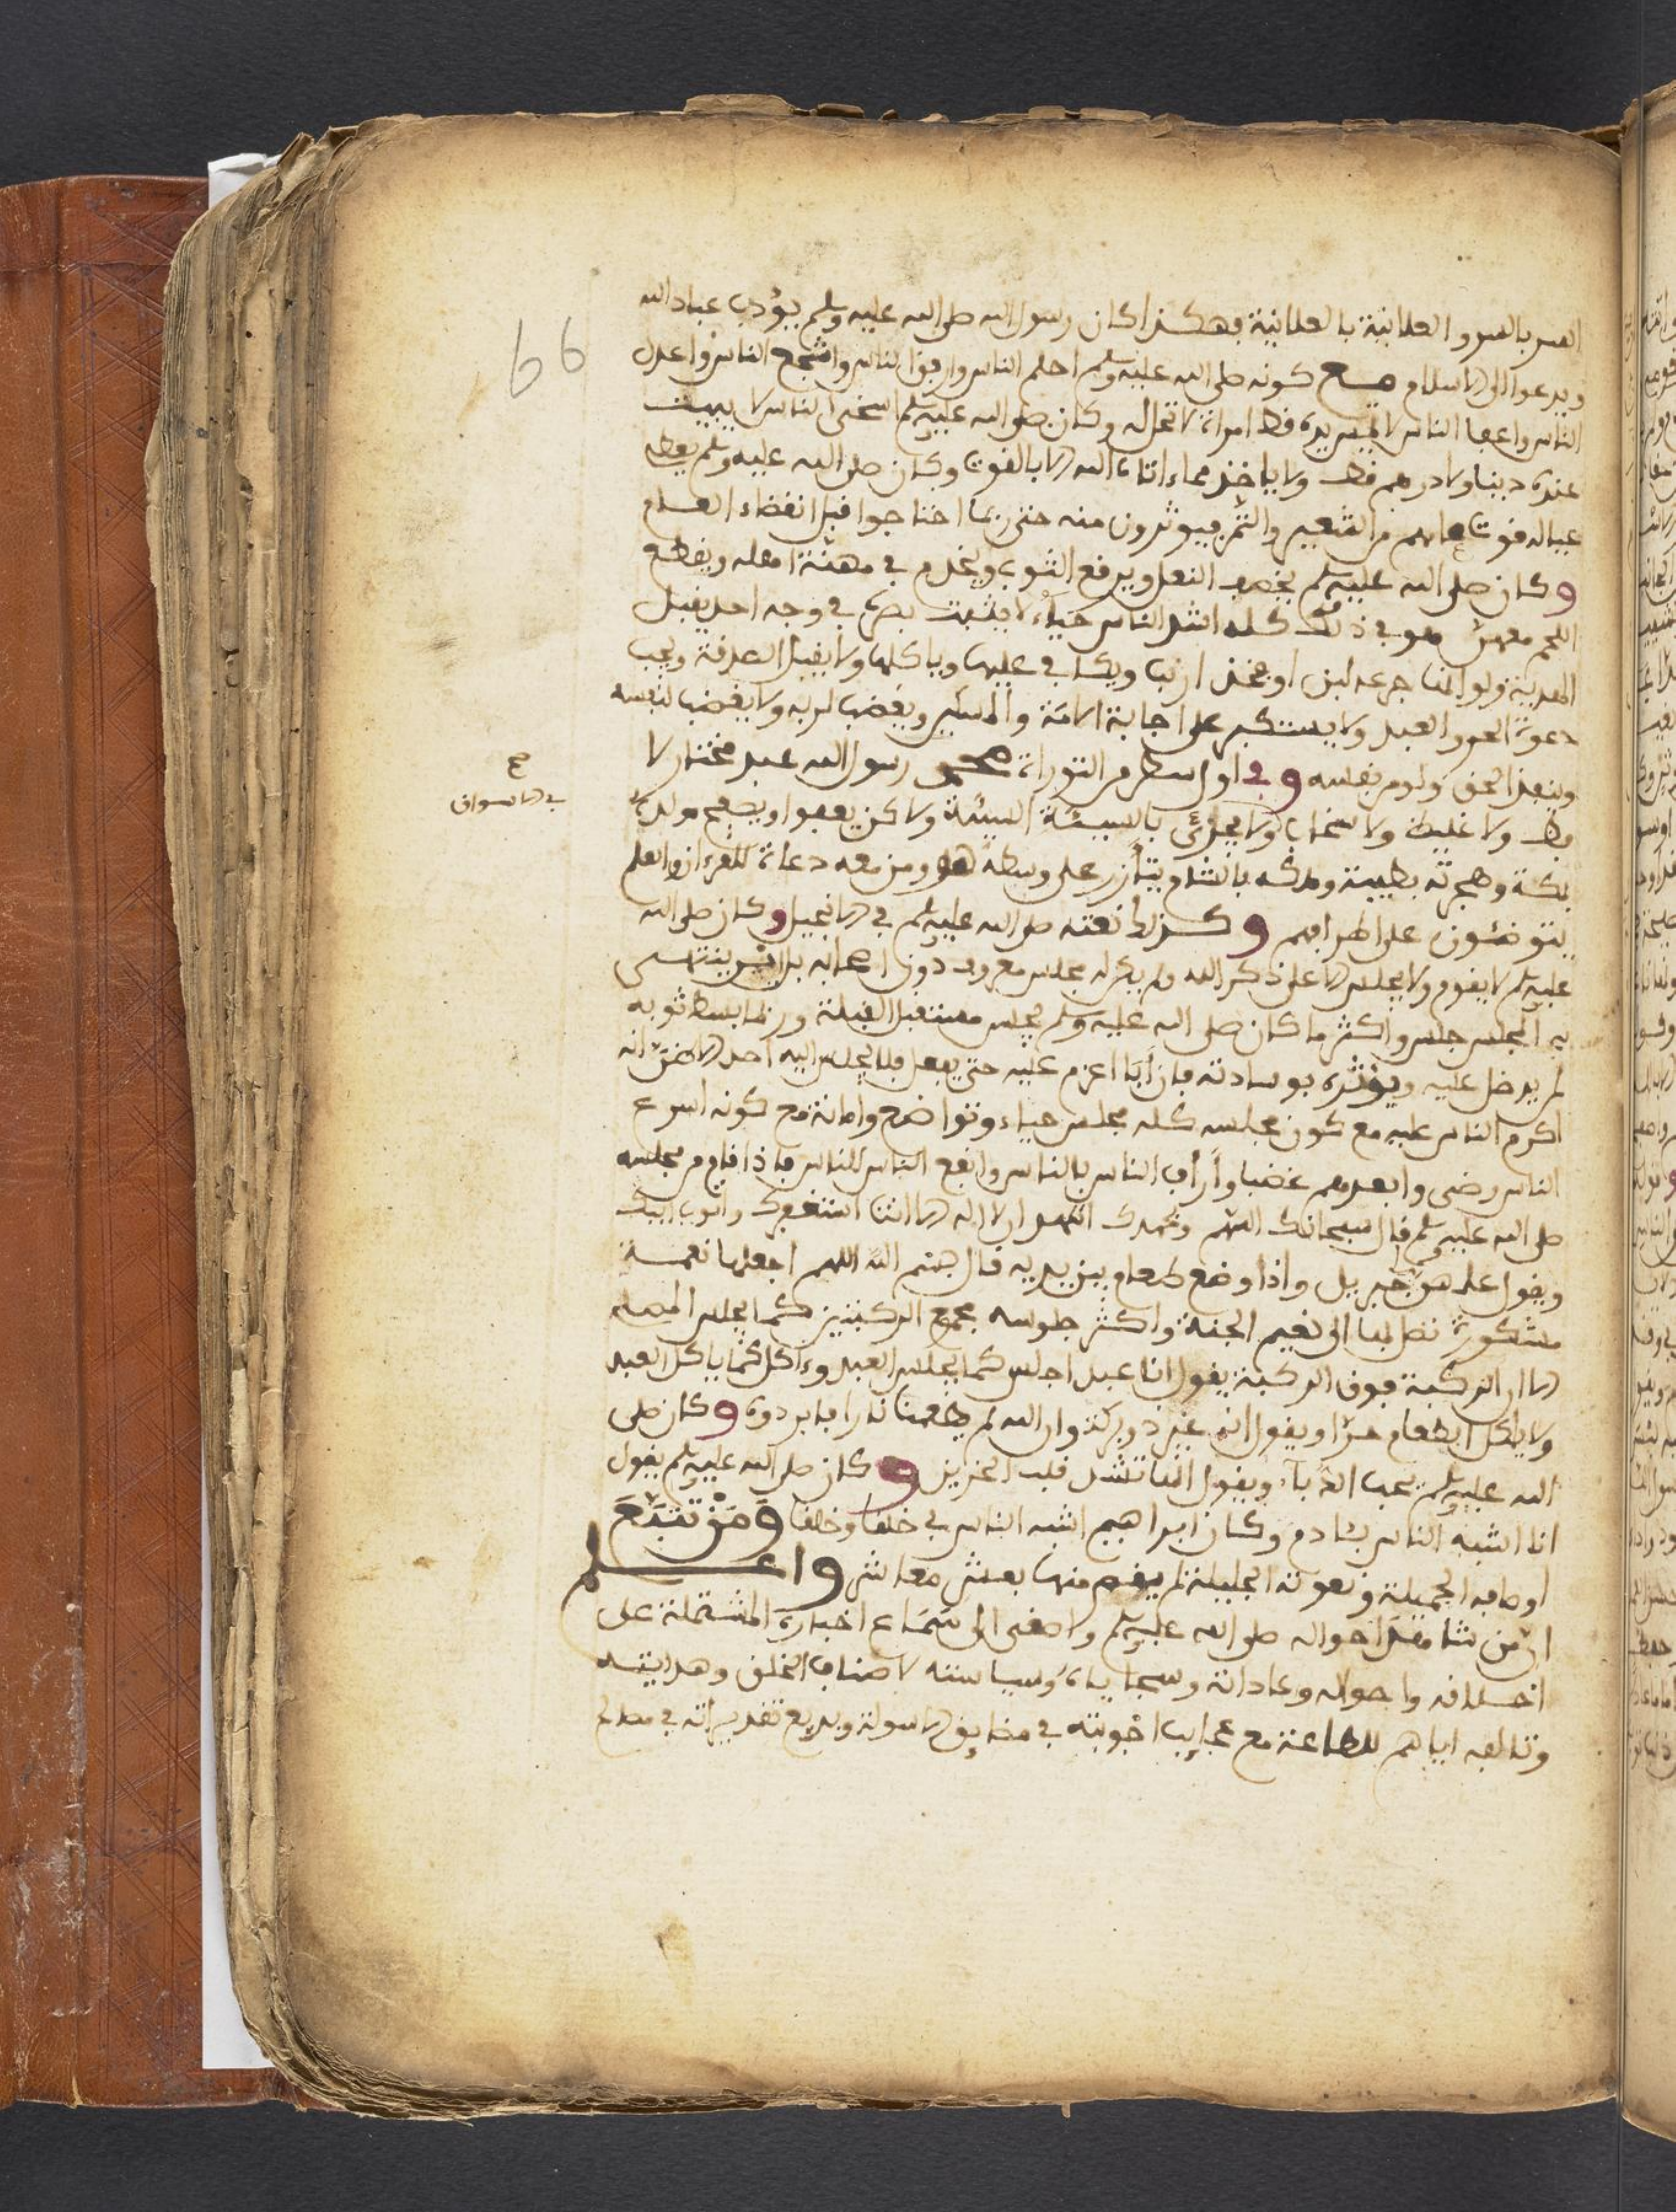 السر بالسر والعلانية بالعلانية فهكذا كان رسول الله صلى الله عليه وسلم يؤدب عباد الله
ويدعوا الى الاسلام مع كونه صلى الله عليه وسلم احلم الناس وارفق الناس واشجع الناس واعدل
الناس واعف الناس لم تمس يده قط امراة لا تحل له وكان صلى الله عليه وسلم اسخى الناس لا يبيت
عنده دينار ولا درهم قط ولا ياخذ مما اتاه الله الا بالقوت وكان صلى الله عليه وسلم يعطي
عياله قوت عامهم من الشعير والتمر فيوثرون منه حتى ربما احتاجوا قبل انقضاء العام
وكان صلى الله عليه وسلم يخصف النعل ويرقع الثوب ويخدم في مهنة اهله ويقطع
اللحم معهن هو في ذلك كله اشد الناس حياء لا يثبت بصره في وجه احد يقبل
الهدية ولو انها جرعة لبن او فخذ ارنب ويكافي عليها وياكلها ولا يقبل الصدقة ويجيب
دعوة الحر والعبد ولا يستكبر على اجابة الامة والمسكين ويغضب لربه ولا يغضب لنفسه
وينفذ الحق ولو من نفسه وفي اول سطر من التوراة محمد رسول الله عبد مختار لا
فظ ولا غليظ ولا سخاب ولا يجزئ بالسيئة السيئة ولاكن يعفوا ويصفح مولده
في الاسواق صح
بمكة وهجرته بطيبة وملكه بالشام يتأزر على وسطه هو ومن معه دعاة للقرءان والعلم
يتوضئون على اطرافهم وكذلك نعته صلى الله عليه وسلم في الانجيل وكان صلى الله
عليه وسلم لا يقوم ولا يجلس الا على ذكر الله ولم يكن له مجلس معروف دون اصحابه بل اين ينتهي
به المجلس جلس واكثر ما كان صلى الله عليه وسلم يجلس مستقبل القبلة وربما بسط ثوبه
لم يدخل عليه ويؤثره بوسادته فان أبا اعزم عليه حتى يفعل فلا يجلس اليه احد الا ظن انه
اكرم الناس عليه مع كون مجلسه كله مجلس حياء وتواضع وامانة مع كونه اسرع
الناس رضى وابعدهم غضبا وأرأف الناس بالناس وانفع الناس للناس فاذا قام من مجلسه
صلى الله عليه وسلم قال سبحانك اللهم وبحمدك اشهد ان لا اله الا انت استغفرك واتوب اليك
ويقول علمهن جبريل واذا وضع طعام بين يديه قال بسم الله اللهم اجعلها نعمة
مشكورة تصل بها الى نعيم الجنة واكثر جلوسه بجمع الركبتين كما يجلس المصلي
الا ان الركبة فوق الركبة يقول انا عبد اجلس كما يجلس العبد وءاكل كما ياكل العبد
ولا ياكل الطعام حرا ويقول انه غير ذو بركة وان الله لم يطعمنا نارا فابردوه وكان صلى
الله عليه وسلم يحب الدباء ويقول انها تشد قلب الحزين وكان صلى الله عليه وسلم يقول
انا اشبه الناس بئادم وكان ابراهيم اشبه الناس بي خلقا وخلقا ومن تتبع
اوصافه الجميلة ونعوته الجليلة لم يقم منها بعشر معاشر واعلم
ان من شاهد احواله صلى الله عليه وسلم واصغى الى سماع اخباره المشتملة على
اخلاقه واحواله وعاداته وسجاياه وسياسته لاصناف الخلق وهدايته
وتالفه اياهم للطاعة مع عجايب اجوبته في مضايق الاسولة وبديع تقديراته في مصالح
66